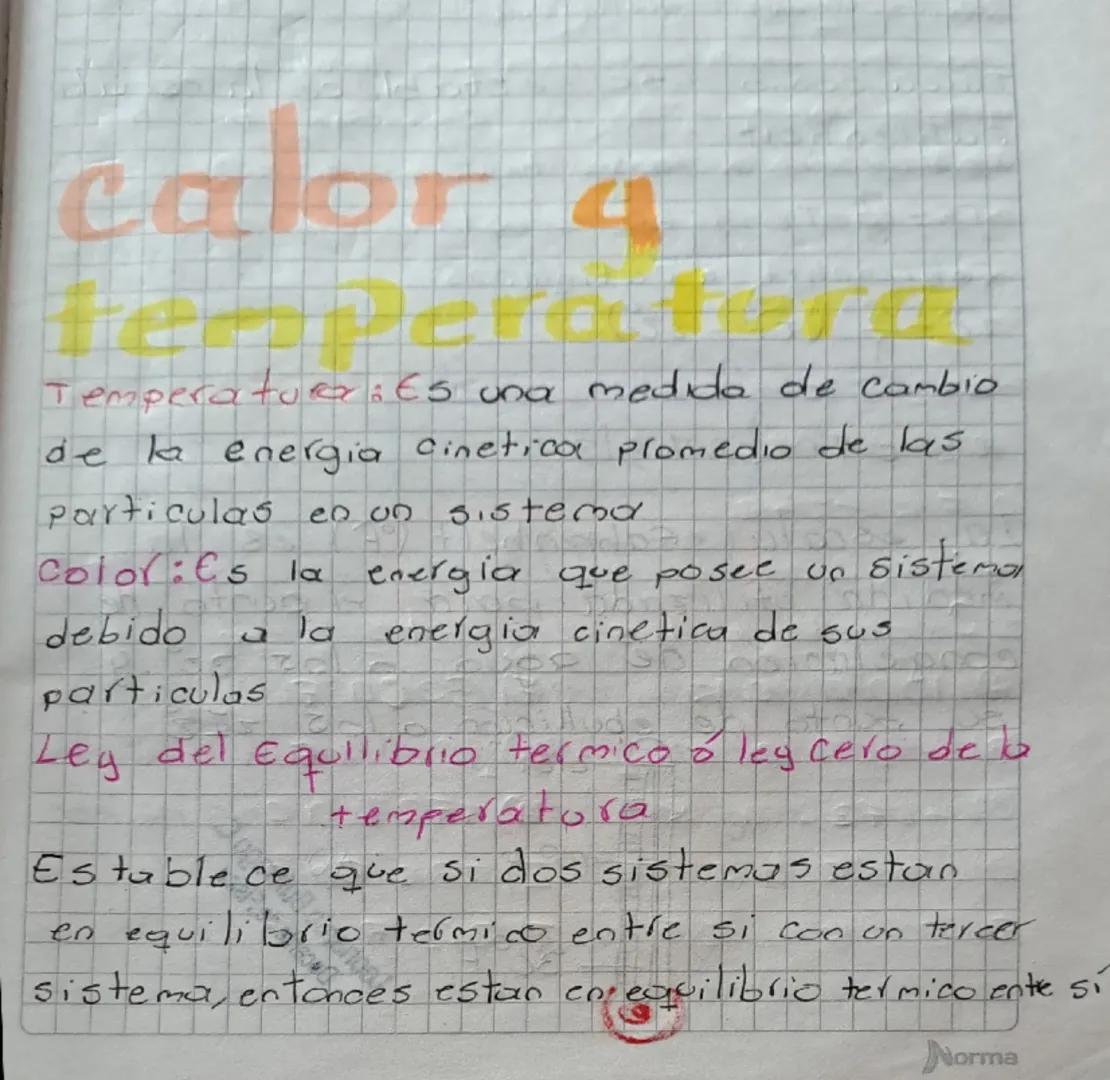 calor y
temperatura
Temperatura: Es una medida de cambio
de la energia cinetica promedio de las
particulas en un sistema
Calor: Es la energia que posee un sistema
debido a la energia cinetica de sus
particulas
Ley del Equilibrio termico ó ley cero de la
temperatura
Establece que si dos sistemas estan
en equilibrio termico entre si con un tercer
sistema, entonces estan en equilibrio termico ente sí
Norma